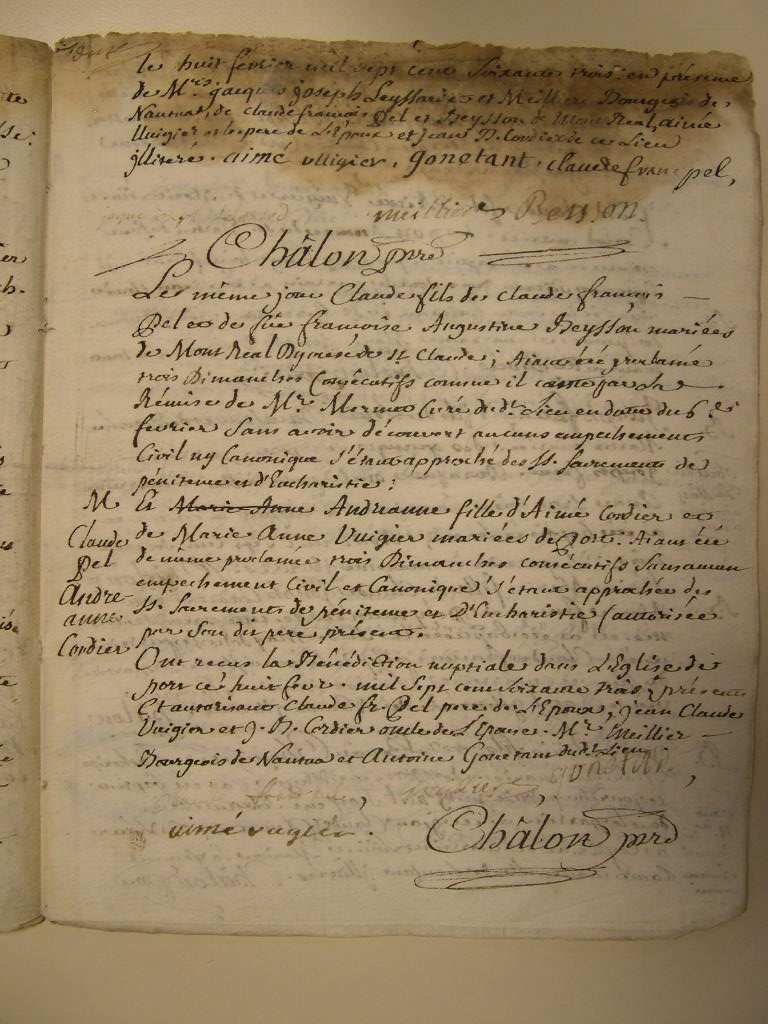 le huit fevrier mil sept cent soixante trois, en présence
de Mrs jacques joseph Leyssard et Meillier Bourgeois de
Nantua, de claude françois Pel et Beysson de Mont Real, aimé
Vuigier et le pere de L'Epoux et jean B. Cordier de ce Lieu
jlliteré. aimé vlligier, gonetant, claude fran pel,
meillier Besson.
Châlon ptre
Le même jour Claude fils de claude françois
Pel et de fûe françoise Augustine Beysson mariées
de Mont Real Dyocése de st Claude; Aiant été proclamé
trois Dimanches Consécutifs comme il conste par la
Rémise de Mr. Mermet Curé dudt. Lieu en datte du 6e
fevrier Sans avoir découvert aucuns empechements
Civil ny Canonique s'étant approché des SS. Sacrements de
pénitence et d'Eucharistie:
Et Marie Anne Andréanne fille d'Aimé Cordier et
de Marie Anne Vuigier mariées de Port. Aiant été
de même proclamée trois Dimanches consécutifs Sans aucun
empechement Civil et Canonique s'étant approchée des
SS. Sacrements de pénitence et D'Eucharistie (autorisée
par Son dit pere présent.
M
Claude
Pel
Andre
anne
Cordier
Ont recus la Bénédiction nuptiale dans L'Eglise de
port cé huit fevr. mil sept cent soixante trois, présents
Et autorisant Claude fr. Pel pere de L'Epoux; jean Claude
Vuigier et J. B. Cordier oncle de L'Epouse. Mr. Meillier
Bourgeois de Nantua et Antoine Gonetant dudt. Lieu
gonetant,
aimé vugier.
Châlon ptre